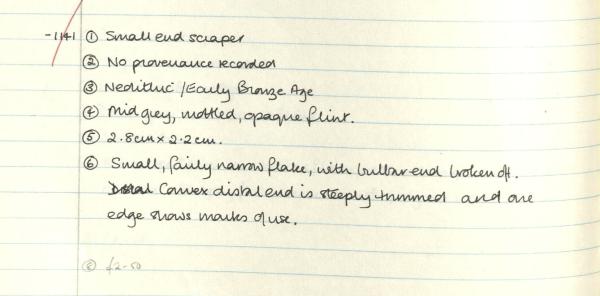 -1141 ① Small end scraper
② No provenance recorded
③ Neolithic / Early Bronze Age
④ Mid grey, mottled, opaque flint.
⑤ 2.8cm × 2.2cm.
⑥ Small, fairly narrow flake, with bulbar end broken off.
Convex distal end is steeply trimmed and one
edge shows marks of use.
⑧ £2-50